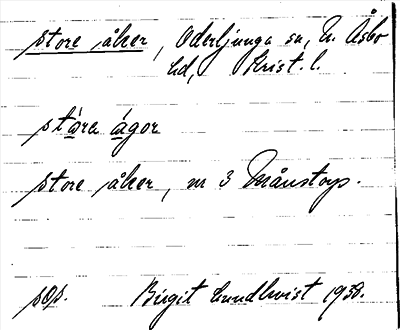 store åker, Oderljunga sn, N. Åsbo
hd, Krist. l.
stọ́ra ágor
store åker, nr 3 Månstorp.
pop. Birgit Lundkvist 1938.